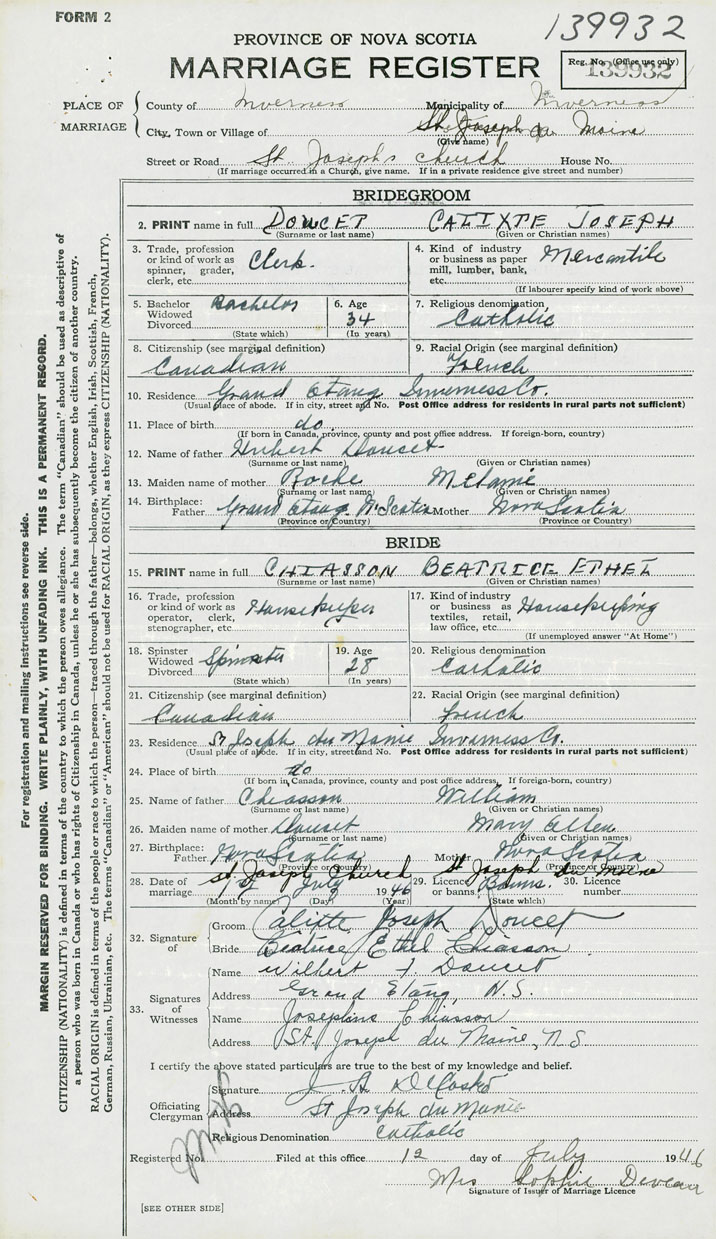 FORM 2
139932
PROVINCE OF NOVA SCOTIA
MARRIAGE REGISTER
Reg. No. (Office use only)
139932
PLACE OF MARRIAGE
County of Inverness Municipality of Inverness
City, Town or Village of St. Joseph du Moine
(Give name)
Street or Road St. Joseph's church House No.
(If marriage occurred in a Church, give name. If in a private residence give street and number)
BRIDEGROOM
2. PRINT name in full DOUCET CALIXTE JOSEPH
(Surname or last name) (Given or Christian names)
3. Trade, profession or kind of work as spinner, grader, clerk, etc. Clerk.
4. Kind of industry or business as paper mill, lumber, bank, etc. Mercantile
(If labourer specify kind of work above)
5. Bachelor Widowed Divorced Bachelor
(State which)
6. Age 34
(In years)
7. Religious denomination Catholic
8. Citizenship (see marginal definition) Canadian
9. Racial Origin (see marginal definition) French
10. Residence Grand Etang Inverness Co.
(Usual place of abode. If in city, street and No. Post Office address for residents in rural parts not sufficient)
11. Place of birth do
(If born in Canada, province, county and post office address. If foreign-born, country)
12. Name of father Hubert Douset
(Surname or last name) (Given or Christian names)
13. Maiden name of mother Roche
(Surname or last name) (Given or Christian names)
14. Birthplace: Father Grand Etang N. Scotia Mother Nova Scotia
(Province or Country) (Province or Country)
BRIDE
15. PRINT name in full CHIASSON BEATRICE ETHEL
(Surname or last name) (Given or Christian names)
16. Trade, profession or kind of work as operator, clerk, stenographer, etc. Housekeeper
17. Kind of industry or business as textiles, retail, law office, etc. Housekeeping
(If unemployed answer "At Home")
18. Spinster Widowed Divorced Spinster
(State which)
19. Age 28
(In years)
20. Religious denomination Catholic
21. Citizenship (see marginal definition) Canadian
22. Racial Origin (see marginal definition) French
23. Residence St Joseph du Moine Inverness Co.
(Usual place of abode. If in city, street and No. Post Office address for residents in rural parts not sufficient)
24. Place of birth do
(If born in Canada, province, county and post office address. If foreign-born, country)
25. Name of father Chiasson William
(Surname or last name) (Given or Christian names)
26. Maiden name of mother Douset Mary Ellen
(Surname or last name) (Given or Christian names)
27. Birthplace: Father Nova Scotia Mother Nova Scotia
(Province or Country) (Province or Country)
St. Joseph Church St Joseph du Moine
28. Date of marriage July 1946
(Month by name) (Day) (Year)
29. Licence or banns Banns.
(State which)
30. Licence number
32. Signature of
Groom Calixte Joseph Doucet
Bride Beatrice Ethel Chiasson
33. Signatures of Witnesses
Name Wilbert J. Doucet
Address Grand Etang, N.S.
Name Josephine Chiasson
Address St. Joseph du Moine, N.S
I certify the above stated particulars are true to the best of my knowledge and belief.
Officiating Clergyman
Signature
Address St Joseph du Moine
Religious Denomination Catholic
Registered No. Filed at this office 12 day of July 1946
Mrs Sophie Deveau
Signature of Issuer of Marriage Licence
[SEE OTHER SIDE]
For registration and mailing instructions see reverse side.
MARGIN RESERVED FOR BINDING. WRITE PLAINLY, WITH UNFADING INK. THIS IS A PERMANENT RECORD.
CITIZENSHIP (NATIONALITY) is defined in terms of the country to which the person owes allegiance. The term "Canadian" should be used as descriptive of
a person who was born in Canada or who has rights of Citizenship in Canada, unless he or she has subsequently become the citizen of another country.
RACIAL ORIGIN is defined in terms of the people or race to which the person—traced through the father—belongs, whether English, Irish, Scottish, French,
German, Russian, Ukrainian, etc. The terms "Canadian" or "American" should not be used for RACIAL ORIGIN, as they express CITIZENSHIP (NATIONALITY).